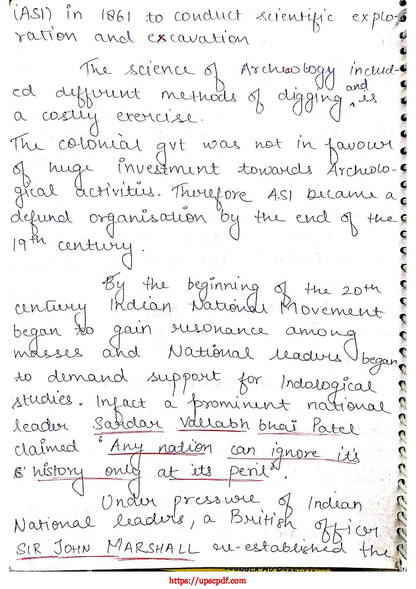 (ASI) in 1861 to conduct scientific explo-
ration and excavation
The science of Archeology includ-
ed different methods of digging and is
a costly exercise.
The colonial gvt was not in favour
of huge investment towards Archeolo-
gical activities. Therefore ASI became a
defund organisation by the end of the
19th century.
By the beginning of the 20th
century Indian National Movement
began to gain resonance among
masses and National leaders began
to demand support for Indological
studies. Infact a prominent national
leader Sardar Vallabh bhai Patel
claimed "Any nation can ignore it's
history only at its peril".
Under pressure of Indian
National leaders, a British officer
SIR JOHN MARSHALL re-established the
https://upscpdf.com